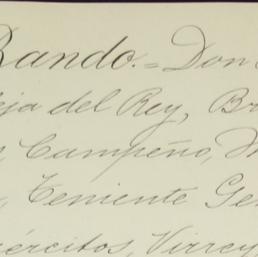 Bando.= Don
del Rey, Br
Campeño,
Teniente Ge
ércitos, Virrey